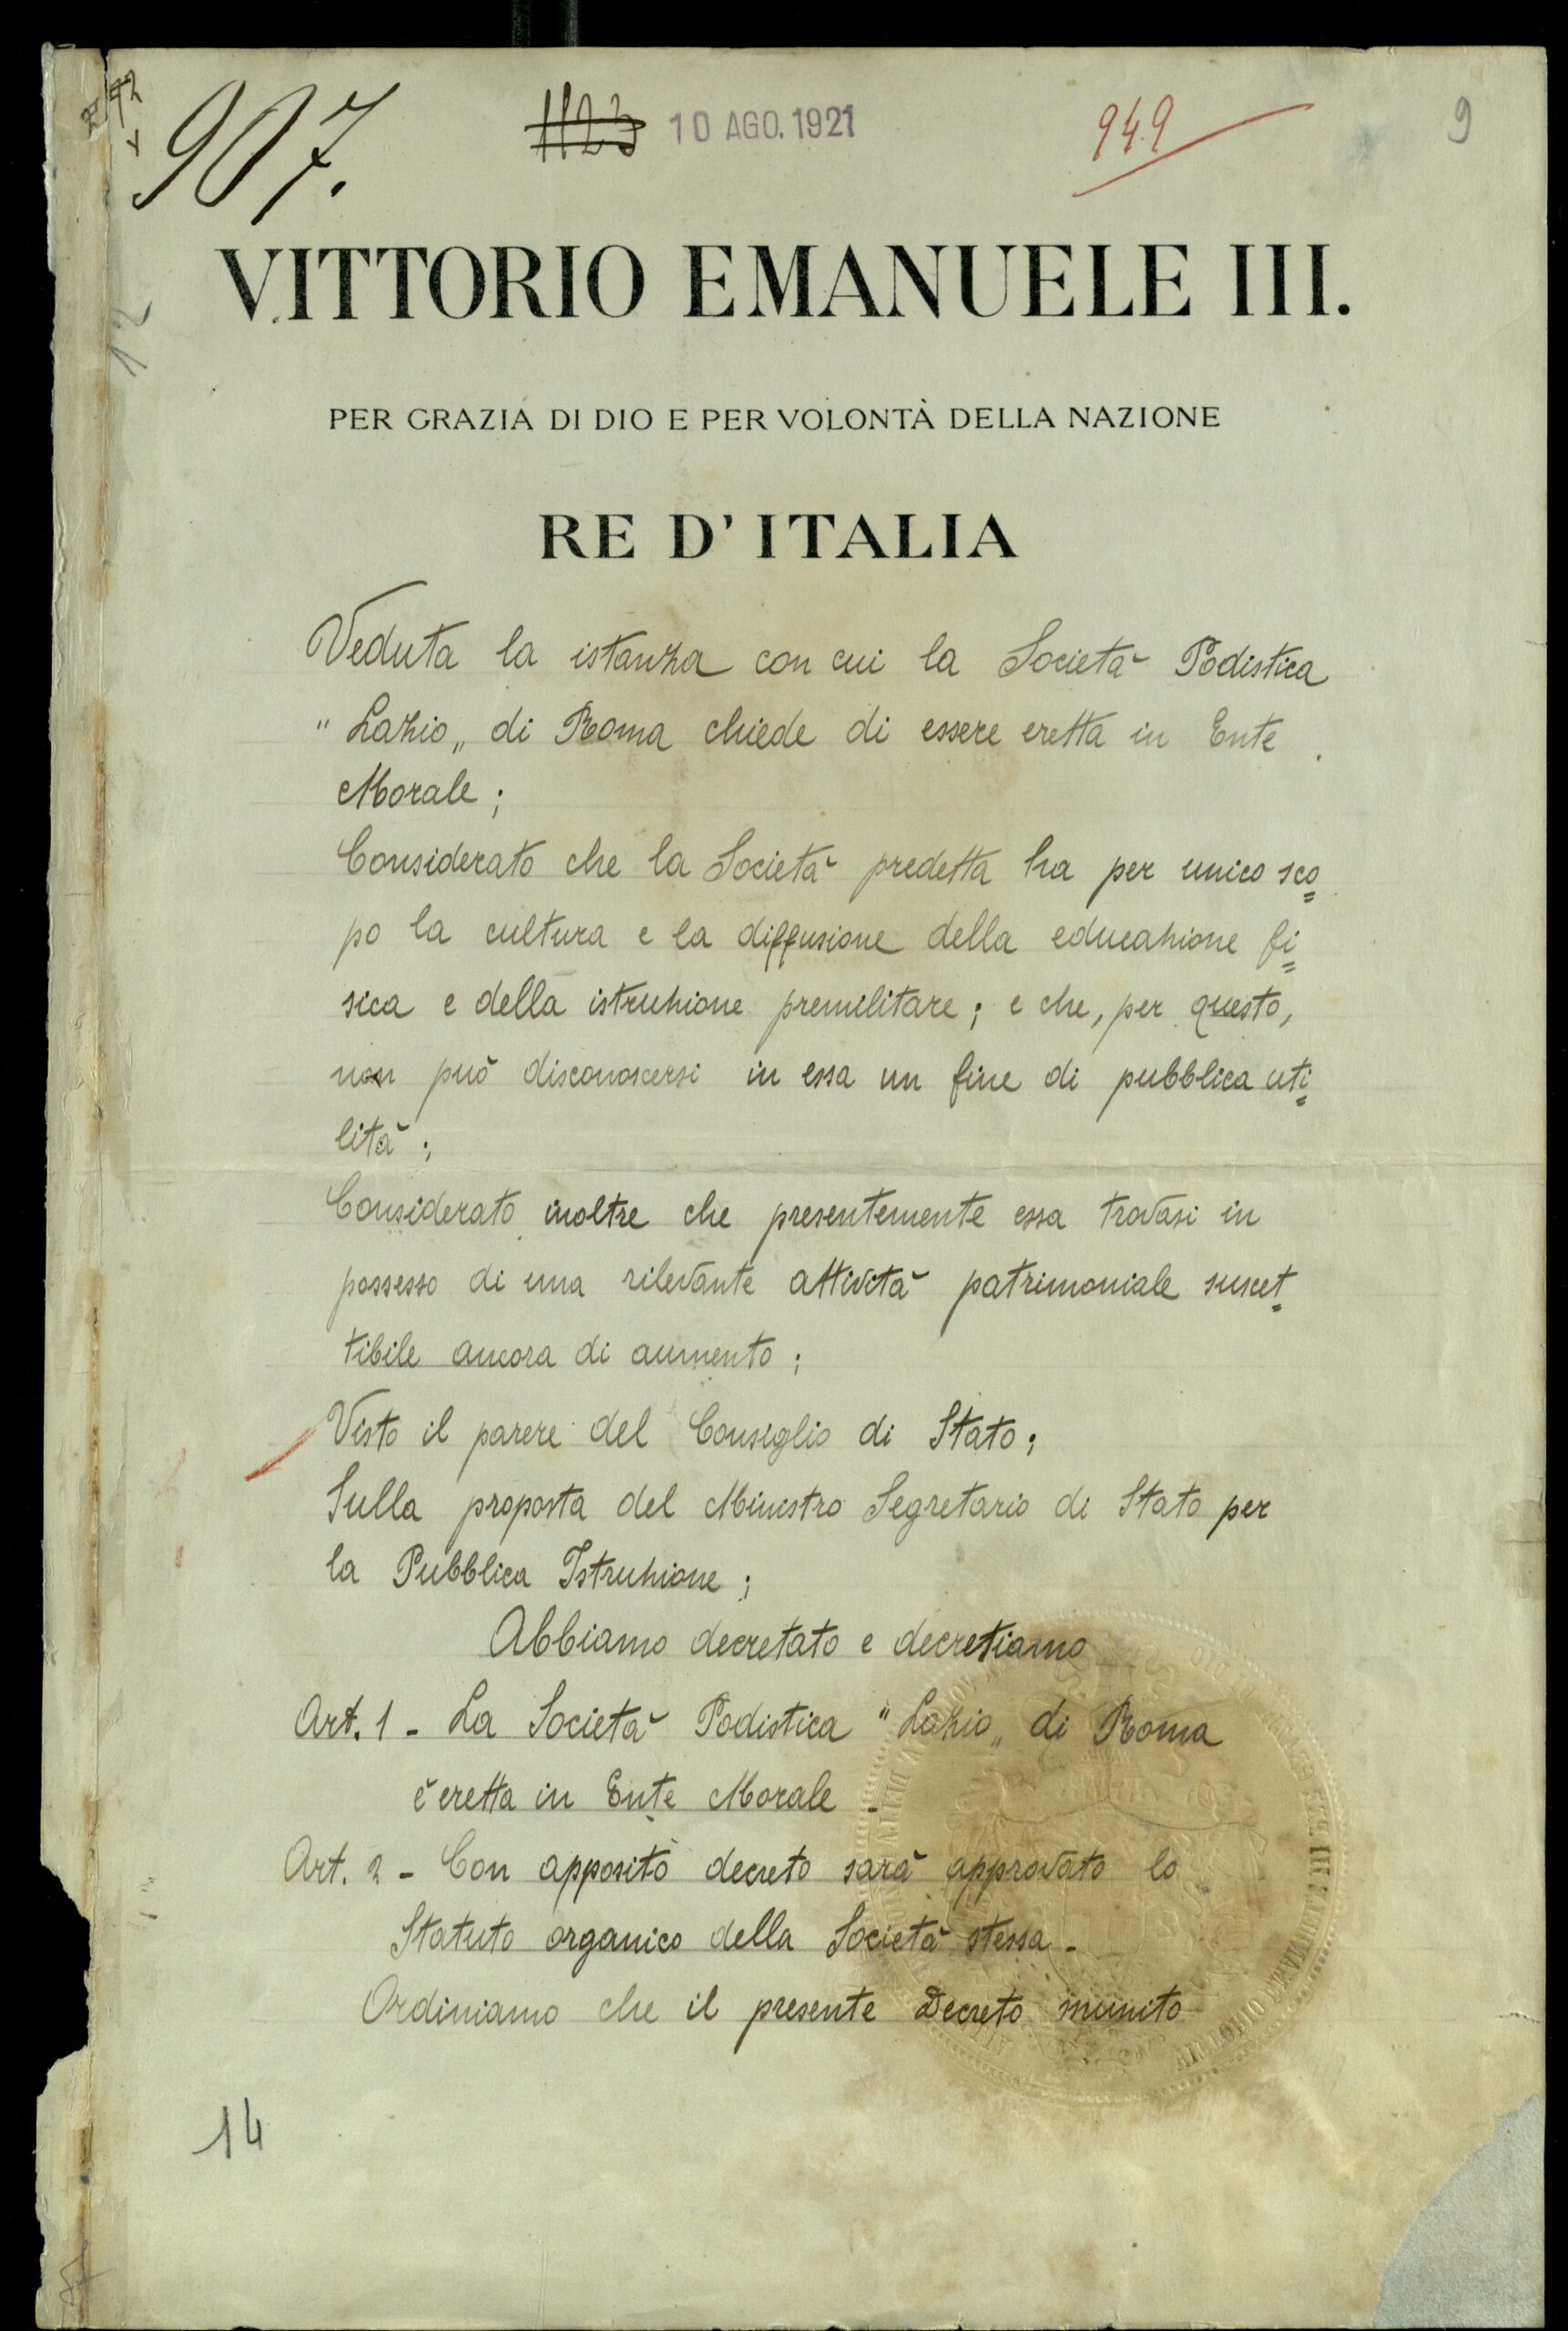 907.
1123 10 AGO. 1921
949
9
12
VITTORIO EMANUELE III.
PER GRAZIA DI DIO E PER VOLONTÀ DELLA NAZIONE
RE D'ITALIA
Veduta la istanza con cui la Società Podistica
"Lazio„ di Roma chiede di essere eretta in Ente
Morale;
Considerato che la Società predetta ha per unico sco=
po la cultura e la diffusione della educazione fi=
sica e della istruzione premilitare; e che, per questo,
non può disconoscersi in essa un fine di pubblica uti=
lità;
Considerato inoltre che presentemente essa trovasi in
possesso di una rilevante attività patrimoniale suscet=
tibile ancora di aumento;
Visto il parere del Consiglio di Stato;
Sulla proposta del Ministro Segretario di Stato per
la Pubblica Istruzione;
Abbiamo decretato e decretiamo
Art. 1 - La Società Podistica "Lazio„ di Roma
è eretta in Ente Morale -
Art. 2 - Con apposito decreto sarà approvato lo
Statuto organico della Società stessa -
Ordiniamo che il presente Decreto munito
14